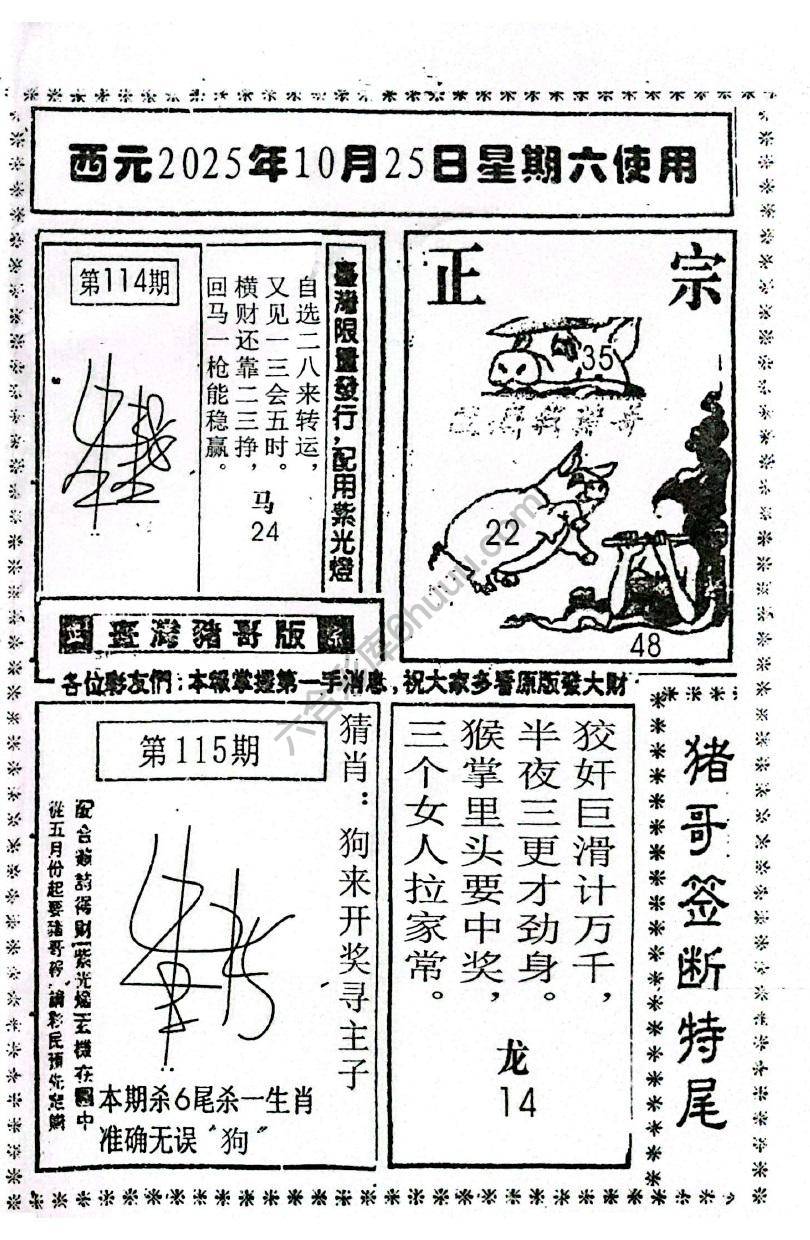 西元2025年10月25日星期六使用
第114期
自选二八来转运，
又见一三会五时。
横财还靠二三挣，
回马一枪能稳赢。
马
24
臺灣限量發行，配用紫光燈
正宗
35
22
48
臺灣豬哥版
各位彩友們：本報掌握第一手消息，祝大家多看原版發大財
第115期
猜肖：狗来开奖寻主子
從五月份起要豬哥
本期杀6尾杀一生肖
准确无误〝狗〞
狡奸巨滑计万千，
半夜三更才劲身。
猴掌里头要中奖，
三个女人拉家常。
龙
14
猪哥签断特尾
六合彩库6huuu.com